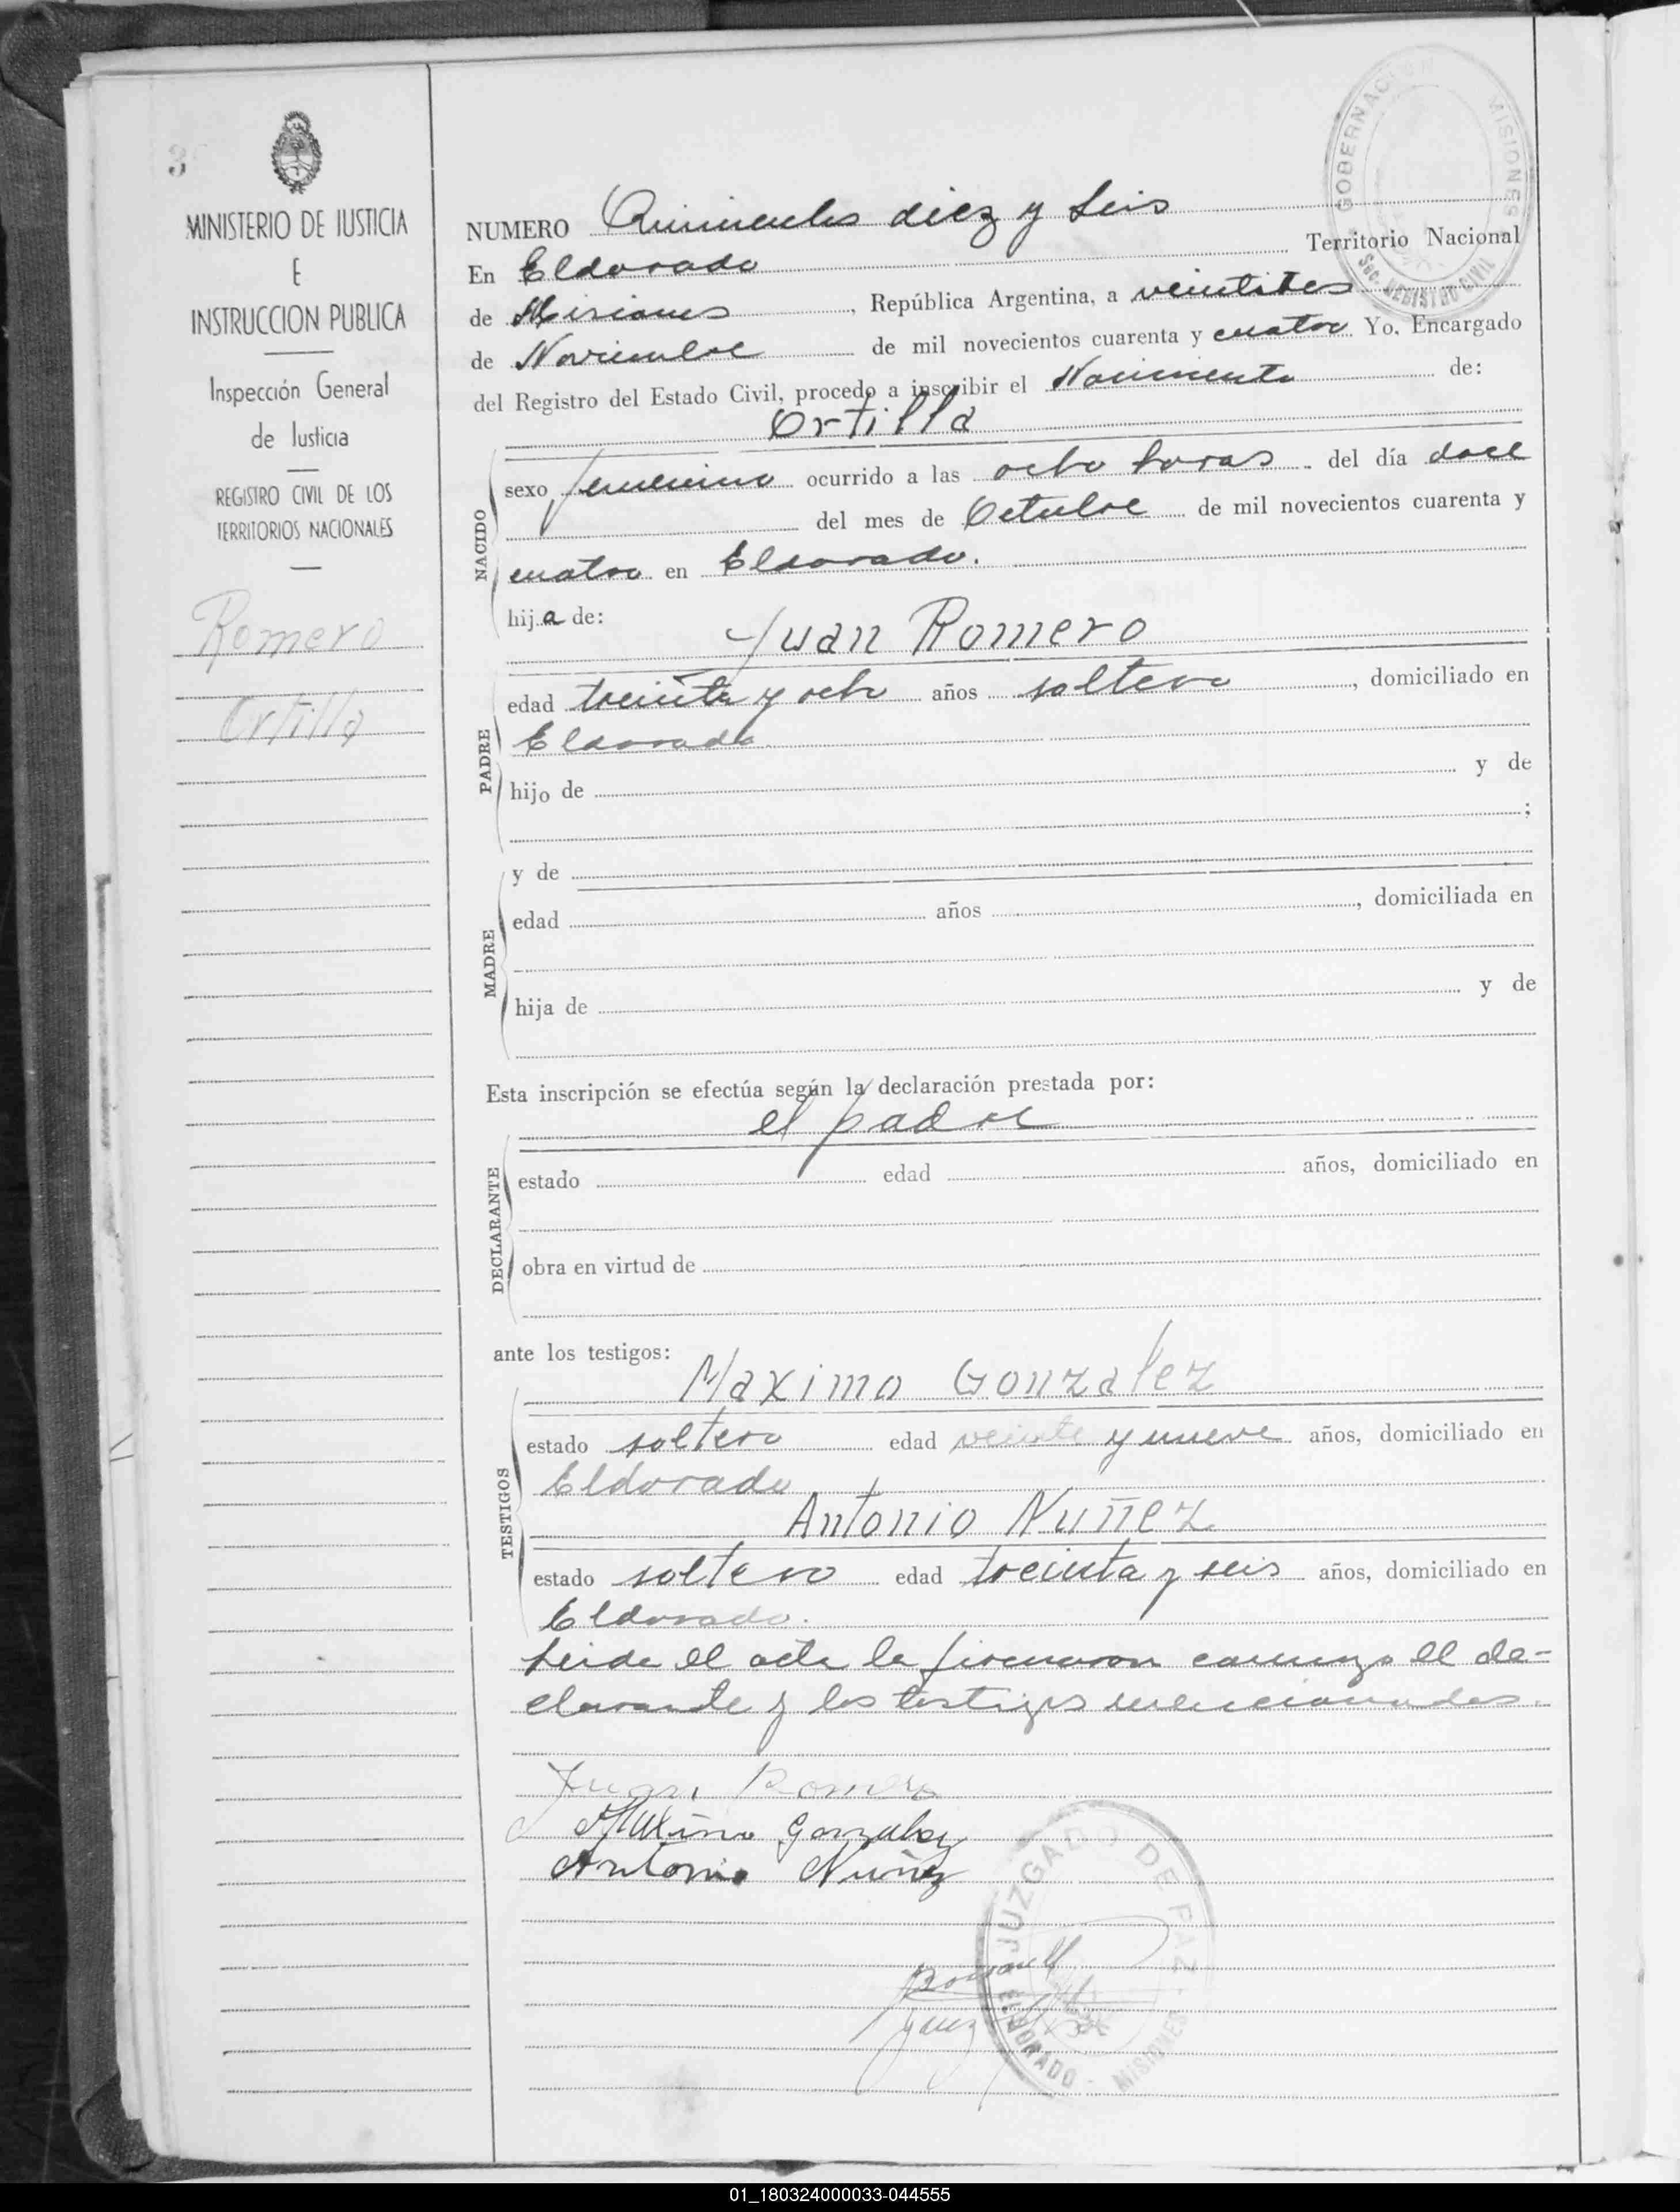 3
MINISTERIO DE JUSTICIA
E
INSTRUCCION PUBLICA
Inspección General
de Justicia
REGISTRO CIVIL DE LOS
TERRITORIOS NACIONALES
Romero
Ortilla
GOBERNACION MISIONES
Sec. REGISTRO CIVIL
NUMERO Quinientos diez y seis
En Eldorado Territorio Nacional
de Misiones, República Argentina, a
de Noviembre de mil novecientos cuarenta y cuatro Yo, Encargado
del Registro del Estado Civil, procedo a inscribir el Nacimiento de:
Ortilla
NACIDO
sexo femenino ocurrido a las ocho horas del día doce
del mes de Octubre de mil novecientos cuarenta y
cuatro en Eldorado.
hija de:
Juan Romero
PADRE
edad treinta y ocho años soltero, domiciliado en
Eldorado
hijo de y de
;
MADRE
y de
edad años , domiciliada en
hija de y de
Esta inscripción se efectúa según la declaración prestada por:
el padre
DECLARANTE
estado edad años, domiciliado en
obra en virtud de
ante los testigos:
Maximo Gonzalez
TESTIGOS
estado soltero edad veinte y nueve años, domiciliado en
Eldorado
Antonio Nuñez
estado soltero edad treinta y seis años, domiciliado en
Eldorado.
Leida el acta la firmaron conmigo el de-
clarante y los testigos mencionados.
Juan Romero
Maximo Gonzalez
Antonio Nuñez
JUZGADO DE PAZ
ELDORADO - MISIONES
01_180324000033-044555